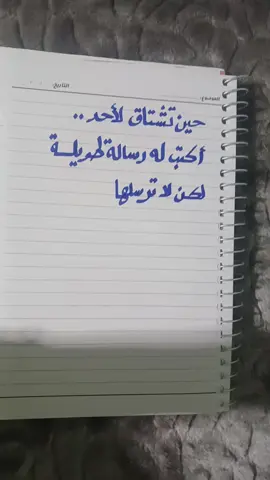 الموضوع: التاريخ:
حين تشتاق لأحد..
أكتب له رسالة طويلة
لكن لا ترسلها